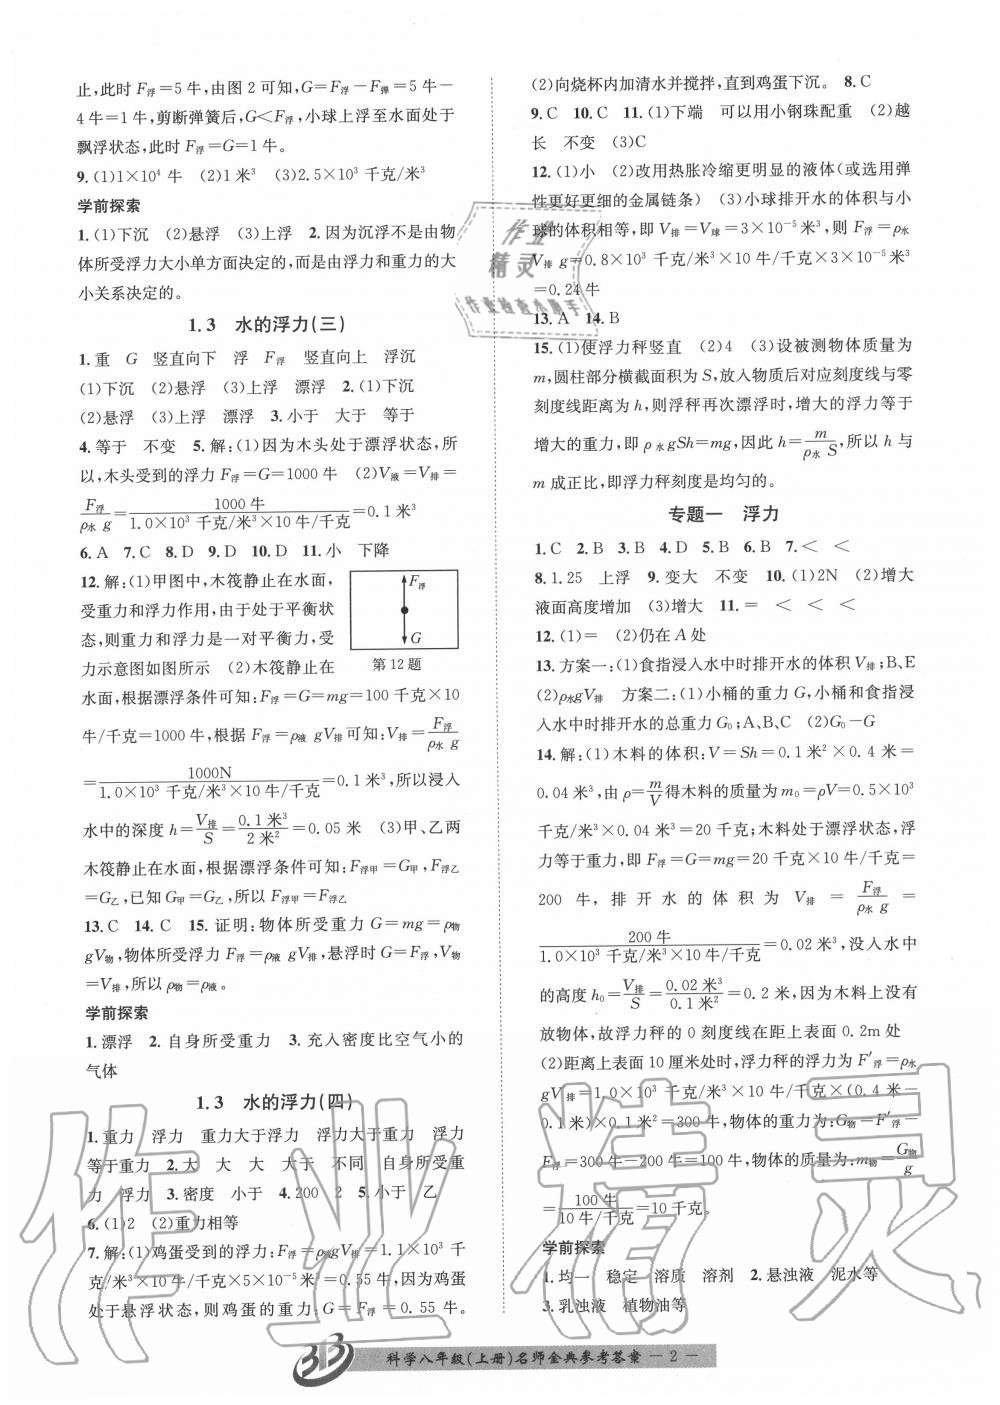 止,此时 F浮=5 牛,由图 2 可知,G=F浮-F弹=5 牛-
4 牛=1 牛,剪断弹簧后,G<F浮,小球上浮至水面处于
飘浮状态,此时 F浮=G=1 牛。
9.(1)1×10⁴ 牛 (2)1 米³ (3)2.5×10³ 千克/米³
学前探索
1.(1)下沉 (2)悬浮 (3)上浮 2.因为沉浮不是由物
体所受浮力大小单方面决定的,而是由浮力和重力的大
小关系决定的。
1.3 水的浮力(三)
1.重 G 竖直向下 浮 F浮 竖直向上 浮沉
(1)下沉 (2)悬浮 (3)上浮 漂浮 2.(1)下沉
(2)悬浮 (3)上浮 漂浮 3.小于 大于 等于
4.等于 不变 5.解:(1)因为木头处于漂浮状态,所
以,木头受到的浮力 F浮=G=1000 牛 (2)V液=V排=
F浮/ρ水 g=1000 牛/1.0×10³ 千克/米³×10 牛/千克=0.1 米³
6.A 7.C 8.D 9.D 10.D 11.小 下降
12.解:(1)甲图中,木筏静止在水面,
受重力和浮力作用,由于处于平衡状
态,则重力和浮力是一对平衡力,受
力示意图如图所示 (2)木筏静止在
F浮
G
第 12 题
水面,根据漂浮条件可知:F浮=G=mg=100 千克×10
牛/千克=1000 牛,根据 F浮=ρ液 gV排可知:V排=F浮/ρ水 g
=1000N/1.0×10³ 千克/米³×10 牛/千克=0.1 米³,所以浸入
水中的深度 h=V排/S=0.1 米³/2 米²=0.05 米 (3)甲、乙两
木筏静止在水面,根据漂浮条件可知:F浮甲=G甲,F浮乙
=G乙,已知 G甲=G乙,所以 F浮甲=F浮乙
13.C 14.C 15.证明:物体所受重力 G=mg=ρ物
gV物,物体所受浮力 F浮=ρ液 gV排,悬浮时 G=F浮,V物
=V排,所以 ρ物=ρ液。
学前探索
1.漂浮 2.自身所受重力 3.充入密度比空气小的
气体
1.3 水的浮力(四)
1.重力 浮力 重力大于浮力 浮力大于重力 浮力
等于重力 2.大 大 大 大于 不同 自身所受重
力 浮力 3.密度 小于 4.200 2 5.小于 乙
6.(1)2 (2)重力相等
7.解:(1)鸡蛋受到的浮力:F浮=ρ液gV排=1.1×10³ 千
克/米³×10 牛/千克×5×10⁻⁵ 米³=0.55 牛,因为鸡蛋
处于悬浮状态,则鸡蛋的重力:G=F浮=0.55 牛。
(2)向烧杯内加清水并搅拌,直到鸡蛋下沉。 8.C
9.C 10.C 11.(1)下端 可以用小钢珠配重 (2)越
长 不变 (3)C
12.(1)小 (2)改用热胀冷缩更明显的液体(或选用弹
性更好更细的金属链条) (3)小球排开水的体积与小
球的体积相等,即 V排=V球=3×10⁻⁵米³,则 F浮=ρ水
V排 g=0.8×10³ 千克/米³×10 牛/千克×3×10⁻⁵米³
=0.24 牛
13.A 14.B
15.(1)使浮力秤竖直 (2)4 (3)设被测物体质量为
m,圆柱部分横截面积为 S,放入物质后对应刻度线与零
刻度线距离为 h,则浮秤再次漂浮时,增大的浮力等于
增大的重力,即 ρ水 gSh=mg,因此 h=m/ρ水 S,所以 h 与
m 成正比,即浮力秤刻度是均匀的。
专题一 浮力
1.C 2.B 3.B 4.D 5.B 6.B 7.< <
8.1.25 上浮 9.变大 不变 10.(1)2N (2)增大
液面高度增加 (3)增大 11.= < < <
12.(1)= (2)仍在 A 处
13.方案一:(1)食指浸入水中时排开水的体积 V排;B、E
(2)ρ水gV排 方案二:(1)小桶的重力 G,小桶和食指浸
入水中时排开水的总重力 G₀;A、B、C (2)G₀-G
14.解:(1)木料的体积:V=Sh=0.1 米²×0.4 米=
0.04 米³,由 ρ=m/V得木料的质量为 m₀=ρV=0.5×10³
千克/米³×0.04 米³=20 千克;木料处于漂浮状态,浮
力等于重力,即 F浮=G=mg=20 千克×10 牛/千克=
200 牛,排开水的体积为 V排=F浮/ρ水 g=
200 牛/1.0×10³ 千克/米³×10 牛/千克=0.02 米³,没入水中
的高度 h₀=V排/S=0.02 米³/0.1 米²=0.2 米,因为木料上没有
放物体,故浮力秤的 0 刻度线在距上表面 0.2m 处
(2)距离上表面 10 厘米处时,浮力秤的浮力为 F′浮=ρ水
gV排=1.0×10³ 千克/米³×10 牛/千克×(0.4 米-
0.1 米)×0.1 米²=300 牛,物体的重力为:G物=F′浮-
F浮=300 牛-200 牛=100 牛,物体的质量为:m物=G物/g
=100 牛/10 牛/千克=10 千克。
学前探索
1.均一 稳定 溶质 溶剂 2.悬浊液 泥水等
3.乳浊液 植物油等
科学八年级(上册)名师金典参考答案 — 2 —
作业
精灵
作业检查小助手
作业精灵